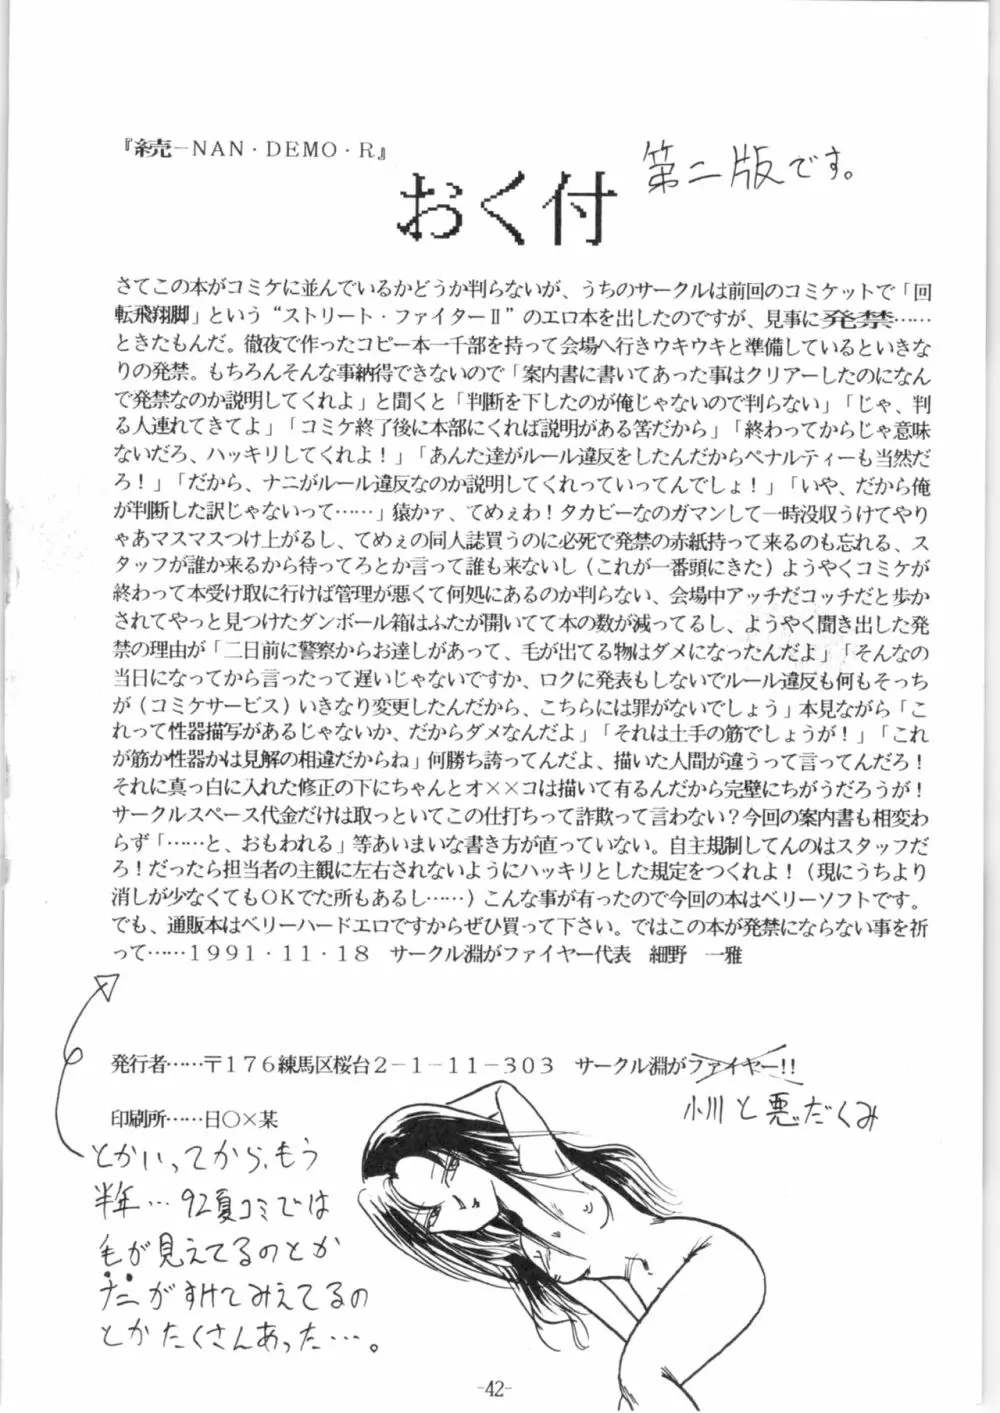 『続－NAN・DEMO・R』
第二版です。
おく付
さてこの本がコミケに並んでいるかどうか判らないが、うちのサークルは前回のコミケットで「回
転飛翔脚」という“ストリート・ファイターⅡ”のエロ本を出したのですが、見事に発禁……
ときたもんだ。徹夜で作ったコピー本一千部を持って会場へ行きウキウキと準備しているといきな
りの発禁。もちろんそんな事納得できないので「案内書に書いてあった事はクリアーしたのになん
で発禁なのか説明してくれよ」と聞くと「判断を下したのが俺じゃないので判らない」「じゃ、判
る人連れてきてよ」「コミケ終了後に本部にくれば説明がある筈だから」「終わってからじゃ意味
ないだろ、ハッキリしてくれよ！」「あんた達がルール違反をしたんだからペナルティーも当然だ
ろ！」「だから、ナニがルール違反なのか説明してくれっていってんでしょ！」「いや、だから俺
が判断した訳じゃないって……」猿かァ、てめぇわ！タカビーなのガマンして一時没収うけてやり
ゃあマスマスつけ上がるし、てめぇの同人誌買うのに必死で発禁の赤紙持って来るのも忘れる、ス
タッフが誰か来るから待ってろとか言って誰も来ないし（これが一番頭にきた）ようやくコミケが
終わって本受け取に行けば管理が悪くて何処にあるのか判らない、会場中アッチだコッチだと歩か
されてやっと見つけたダンボール箱はふたが開いてて本の数が減ってるし、ようやく聞き出した発
禁の理由が「二日前に警察からお達しがあって、毛が出てる物はダメになったんだよ」「そんなの
当日になってから言ったって遅いじゃないですか、ロクに発表もしないでルール違反も何もそっち
が（コミケサービス）いきなり変更したんだから、こちらには罪がないでしょう」本見ながら「こ
れって性器描写があるじゃないか、だからダメなんだよ」「それは土手の筋でしょうが！」「これ
が筋か性器かは見解の相違だからね」何勝ち誇ってんだよ、描いた人間が違うって言ってんだろ！
それに真っ白に入れた修正の下にちゃんとオ××コは描いて有るんだから完璧にちがうだろうが！
サークルスペース代金だけは取っといてこの仕打ちって詐欺って言わない？今回の案内書も相変わ
らず「……と、おもわれる」等あいまいな書き方が直っていない。自主規制してんのはスタッフだ
ろ！だったら担当者の主観に左右されないようにハッキリとした規定をつくれよ！（現にうちより
消しが少なくてもＯＫでた所もあるし……）こんな事が有ったので今回の本はベリーソフトです。
でも、通販本はベリーハードエロですからぜひ買って下さい。ではこの本が発禁にならない事を祈
って……１９９１・１１・１８　サークル淵がファイヤー代表　細野　一雅
発行者……〒１７６練馬区桜台２－１－１１－３０３　サークル淵がファイヤー!!
小川と悪だくみ
印刷所……日○×某
とかいってから、もう
半年…92夏コミでは
毛が見えてるのとか
ナニがすけてみえてるの
とかたくさんあった…。
-42-